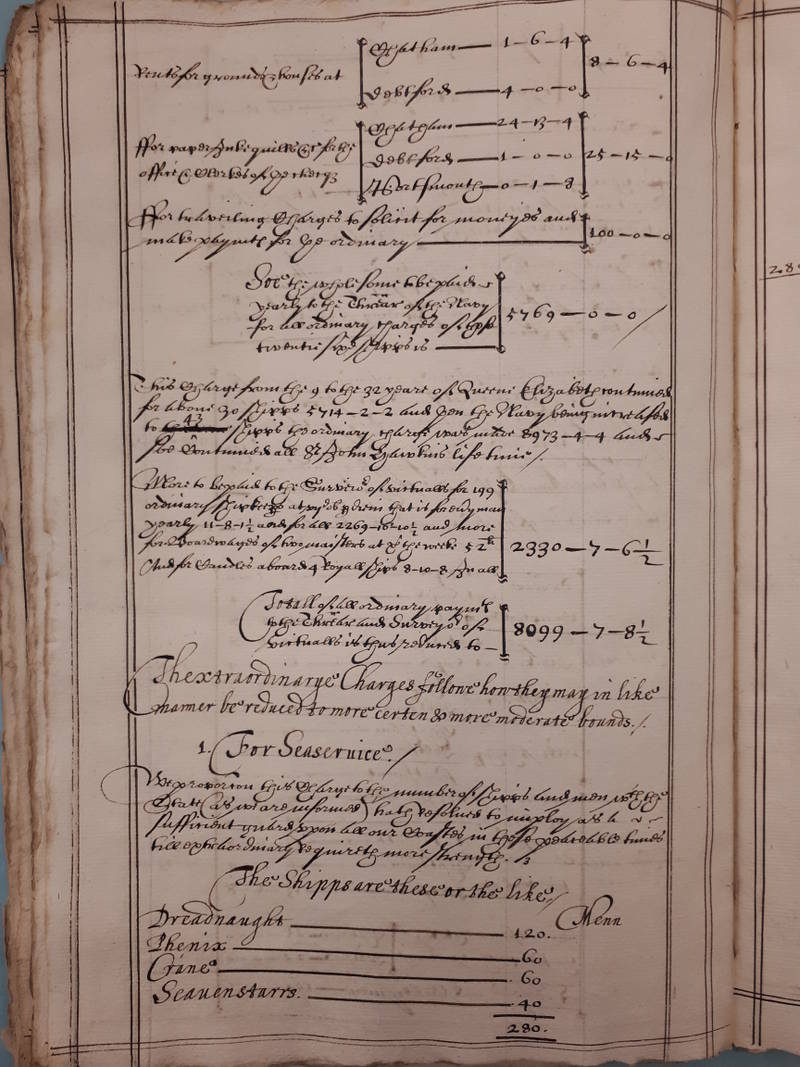 Rents for grounds & houses at
Chatham — 1 – 6 – 4
Debtford — 4 – 0 – 0
8 – 6 – 4
ffor paper Inke quills &c for the
office & Clerkes of
Chatham — 24 – 13 – 4
Debtford — 1 – 0 – 0
Portsmouth — 0 – 1 – 8
25 – 15 – 0
ffor traveiling Charges to solicit for moneyes and
make paymts for ye ordinary
100 – 0 – 0
Soe the whole some to be paid
yearly to the Threār of the Navy
for all ordinary charges of these
twentie sixe shipps is
5769 – 0 – 0 /
This Charge from the 9 to the 32 yeare of Queene Elizabeth continued
for above 30 shipps 5714 – 2 – 2 and then the Navy being increased
to 43 shipps the ordinary charge was made 8973 – 4 – 4 and
soe Continued all Sr John Hawkins life time /.
More to be paid to the Surveior of victualls for 199
ordinary shipkeeps at that is for every man
yearly 11-8-1½ and for all 2269-16-10½ and more
for Boardwages of two maisters at the weeke 52
And for Candles aboard 4 Royall ships 8-10-8 In all
2330 – 7 – 6½
Totall of all ordinary paymts
to the Threār and Surveyor of
victualls is thus reduced to —
8099 – 7 – 8½
The extraordinarye Charges followe how they may in like
manner be reduced to more certen & more moderate bounds. /.
1. For Seaservice. /
We proporcon this Charge to the number of shipps and men wch the
State (as we are informed) hath resolved to imploy as a
sufficient guard uppon all our Coastes in these peaceable times
till extraordinary require more strength.
The Shipps are these or the like /
Menn
Dreadnaught — 120.
Phenix — 60
Crane — 60
Seavenstarrs. — 40
280.
289